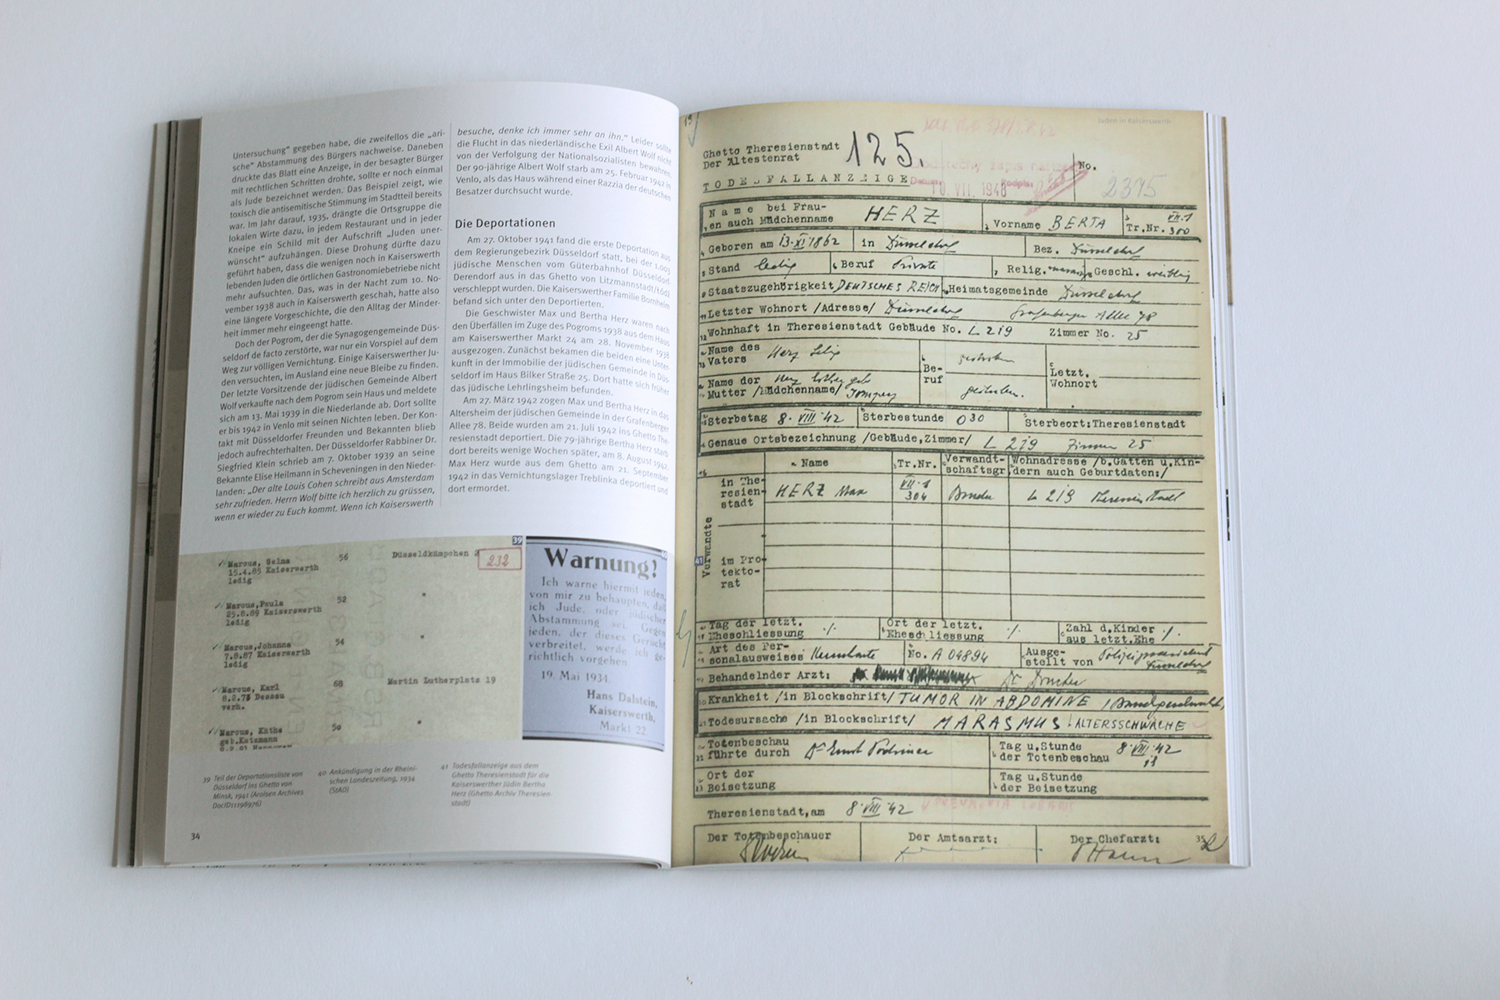 Untersuchung" gegeben habe, die zweifellos die „ari-
sche" Abstammung des Bürgers nachweise. Daneben
druckte das Blatt eine Anzeige, in der besagter Bürger
mit rechtlichen Schritten drohte, sollte er noch einmal
als Jude bezeichnet werden. Das Beispiel zeigt, wie
toxisch die antisemitische Stimmung im Stadtteil bereits
war. Im Jahr darauf, 1935, drängte die Ortsgruppe die
lokalen Wirte dazu, in jedem Restaurant und in jeder
Kneipe ein Schild mit der Aufschrift „Juden uner-
wünscht" aufzuhängen. Diese Drohung dürfte dazu
geführt haben, dass die wenigen noch in Kaiserswerth
lebenden Juden die örtlichen Gastronomiebetriebe nicht
mehr aufsuchten. Das, was in der Nacht zum 10. No-
vember 1938 auch in Kaiserswerth geschah, hatte also
eine längere Vorgeschichte, die den Alltag der Minder-
heit immer mehr eingeengt hatte.
Doch der Pogrom, der die Synagogengemeinde Düs-
seldorf de facto zerstörte, war nur ein Vorspiel auf dem
Weg zur völligen Vernichtung. Einige Kaiserswerther Ju-
den versuchten, im Ausland eine neue Bleibe zu finden.
Der letzte Vorsitzende der jüdischen Gemeinde Albert
Wolf verkaufte nach dem Pogrom sein Haus und meldete
sich am 13. Mai 1939 in die Niederlande ab. Dort sollte
er bis 1942 in Venlo mit seinen Nichten leben. Der Kon-
takt mit Düsseldorfer Freunden und Bekannten blieb
jedoch aufrechterhalten. Der Düsseldorfer Rabbiner Dr.
Siegfried Klein schrieb am 7. Oktober 1939 an seine
Bekannte Elise Heilmann in Scheveningen in den Nieder-
landen: „Der alte Louis Cohen schreibt aus Amsterdam
sehr zufrieden. Herrn Wolf bitte ich herzlich zu grüssen,
wenn er wieder zu Euch kommt. Wenn ich Kaiserswerth
besuche, denke ich immer sehr an ihn." Leider sollte
die Flucht in das niederländische Exil Albert Wolf nicht
von der Verfolgung der Nationalsozialisten bewahren.
Der 90-jährige Albert Wolf starb am 25. Februar 1942 in
Venlo, als das Haus während einer Razzia der deutschen
Besatzer durchsucht wurde.
Die Deportationen
Am 27. Oktober 1941 fand die erste Deportation aus
dem Regierungsbezirk Düsseldorf statt, bei der 1.003
jüdische Menschen vom Güterbahnhof Düsseldorf-
Derendorf aus in das Ghetto von Litzmannstadt/Łódź
verschleppt wurden. Die Kaiserswerther Familie Bornheim
befand sich unter den Deportierten.
Die Geschwister Max und Bertha Herz waren nach
den Überfällen im Zuge des Pogroms 1938 aus dem Haus
am Kaiserswerther Markt 24 am 28. November 1938
ausgezogen. Zunächst bekamen die beiden eine Unter-
kunft in der Immobilie der jüdischen Gemeinde in Düs-
seldorf im Haus Bilker Straße 25. Dort hatte sich früher
das jüdische Lehrlingsheim befunden.
Am 27. März 1942 zogen Max und Bertha Herz in das
Altersheim der jüdischen Gemeinde in der Grafenberger
Allee 78. Beide wurden am 21. Juli 1942 ins Ghetto The-
resienstadt deportiert. Die 79-jährige Bertha Herz starb
dort bereits wenige Wochen später, am 8. August 1942.
Max Herz wurde aus dem Ghetto am 21. September
1942 in das Vernichtungslager Treblinka deportiert und
dort ermordet.
39
✓ Marcus, Selma 56 Düsseldkämpchen 2
15.4.85 Kaiserwerth
ledig
232
✓ Marcus,Paula 52 "
25.8.89 Kaiserwerth
ledig
✓ Marcus,Johanna 54 "
7.8.87 Kaiserwerth
ledig
✓ Marcus, Karl 68 Martin Lutherplatz 19
8.2.73 Dessau
verh.
✓ Marcus, Käthe 50 "
geb.Katzmann
40
Warnung!
Ich warne hiermit jeden,
von mir zu behaupten, daß
ich Jude, oder jüdischer
Abstammung sei. Gegen
jeden, der dieses Gerücht
verbreitet, werde ich ge-
richtlich vorgehen.
19. Mai 1934.
Hans Dalstein,
Kaiserswerth,
Markt 22
39 Teil der Deportationsliste von
Düsseldorf ins Ghetto von
Minsk, 1941 (Arolsen Archives
DocID11198976)
40 Ankündigung in der Rheini-
schen Landeszeitung, 1934
(StAD)
41 Todesfallanzeige aus dem
Ghetto Theresienstadt für die
Kaiserswerther Jüdin Bertha
Herz (Ghetto Archiv Theresien-
stadt)
34
Juden in Kaiserswerth
Ghetto Theresienstadt
Der Ältestenrat
125.
No.
2375
TODESFALLANZEIGE
10. VII. 1948
Name bei Frau-
en auch Mädchenname HERZ Vorname BERTA Tr.Nr. VII-1 300
Geboren am 13. XI 1862 in Düsseldorf Bez. Düsseldorf
Stand ledig Beruf Private Relig. Geschl. weiblig
Staatszugehörigkeit DEUTSCHES REICH Heimatsgemeinde Düsseldorf
Letzter Wohnort /Adresse/ Düsseldorf Grafenberger Allee 78
Wohnhaft in Theresienstadt Gebäude No. L 219 Zimmer No. 25
Name des
Vaters Herz Be-
ruf gestorben Letzt.
Wohnort
Name der
Mutter /Mädchenname/ Herz geb. gestorben.
Sterbetag 8. VIII. 42 Sterbestunde 0 30 Sterbeort:Theresienstadt
Genaue Ortsbezeichnung /Gebäude,Zimmer/ L 219 Zimmer 25
Name Tr.Nr. Verwandt-
schaftsgr. Wohnadresse /b.Gatten u.Kin-
dern auch Geburtdaten:/
Verwandte
in The-
resien-
stadt
HERZ Max VII-1 304 Bruder L 219 Theresienstadt
41
im Pro-
tekto-
rat
Tag der letzt.
Eheschliessung ./. Ort der letzt.
Eheschliessung ./. Zahl d.Kinder
aus letzt.Ehe ./.
Art des Per-
sonalausweises Kennkarte No. A 04894 Ausge-
stellt von Polizeipräsident
Düsseldorf
Behandelnder Arzt:
Krankheit /in Blockschrift/ TUMOR IN ABDOMINE
Todesursache /in Blockschrift/ MARASMUS. ALTERSSCHWÄCHE
Totenbeschau
führte durch Dr Ernst Tag u.Stunde
der Totenbeschau 8. VIII. 42
13
Ort der
Beisetzung Tag u.Stunde
der Beisetzung
Theresienstadt,am 8. VIII. 42
Der Totenbeschauer Der Amtsarzt: Der Chefarzt:
35